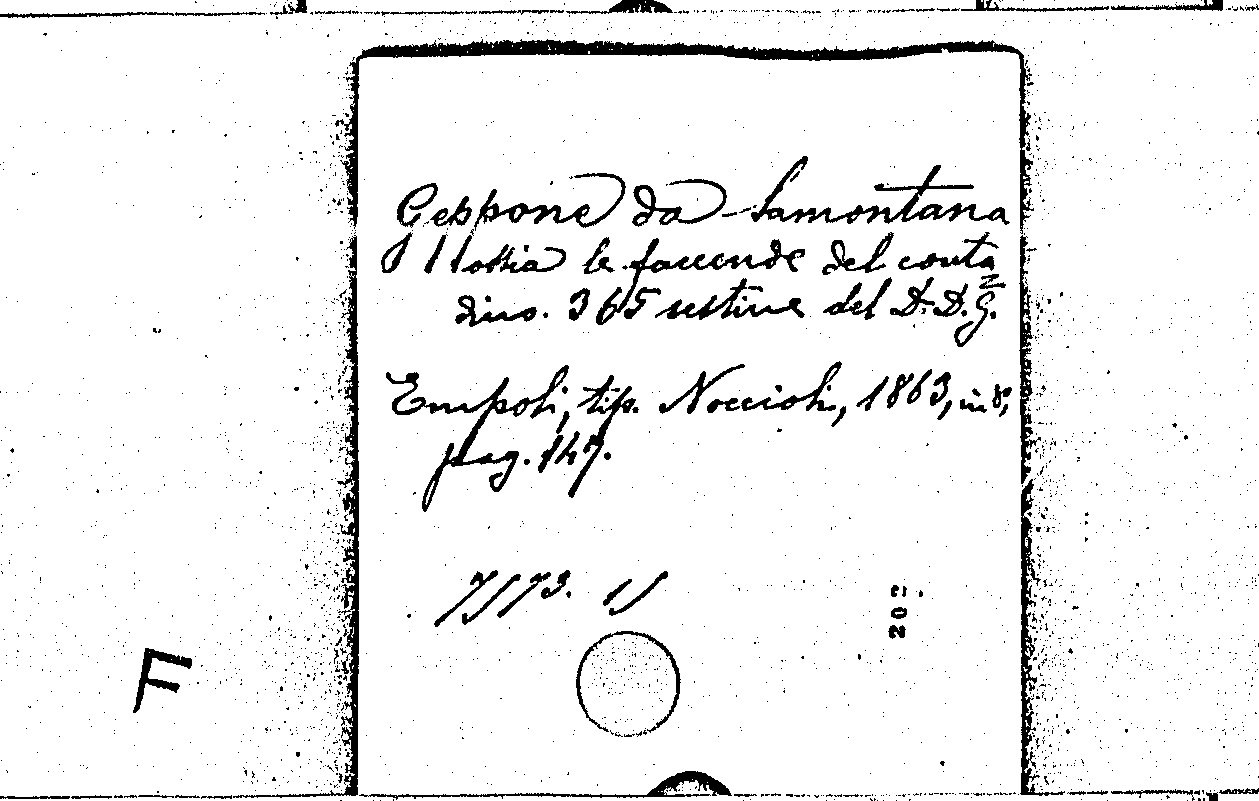 Geppone da Samontana
ossia le faccende del conta
dino. 365 sestine del D. D. G. N.
Empoli, tip. Noccioli, 1863, in 8°,
pag. 147.
202
F